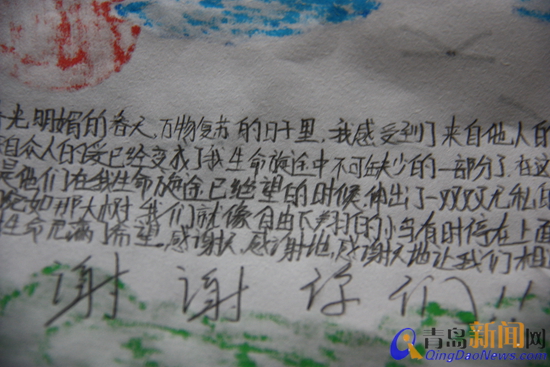 光明媚的春天,万物复苏的日子里,我感受到了来自他人的
自众人的爱已经变成了我生命旅途中不可缺少的一部分了,在这
是他们在我生命旅途,已绝望的时候,伸出了一双双无私的
如那大树,我们就像自由飞翔的小鸟有时停在上面
生命充满了希望,感谢天,感谢地,感谢天地让我们相
谢谢你们!!
青岛新闻网
QingDaoNews.com